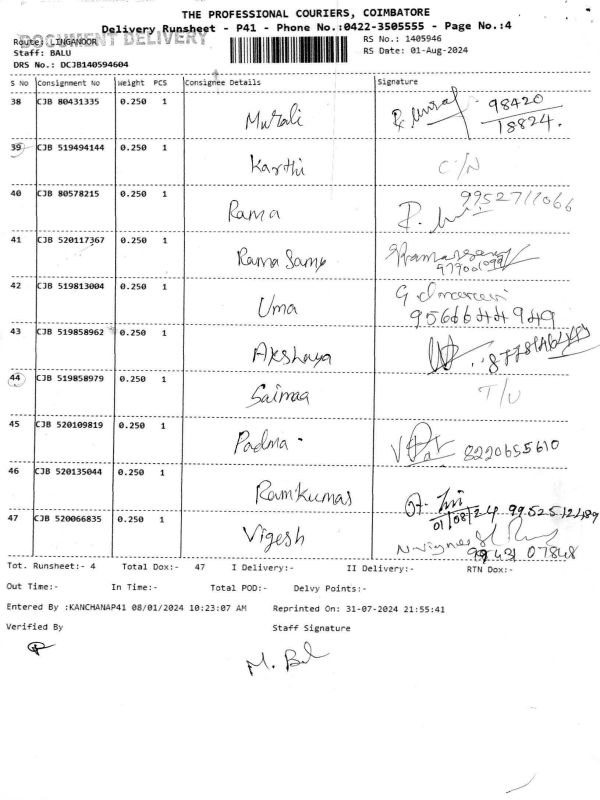 THE PROFESSIONAL COURIERS, COIMBATORE
Delivery Runsheet - P41 - Phone No.:0422-3505555 - Page No.:4
DOCUMENT DELIVERY
Route: LINGANOOR
RS No.: 1405946
Staff: BALU
RS Date: 01-Aug-2024
DRS No.: DCJB140594604
S No Consignment No Weight PCS Consignee Details Signature
38 CJB 80431335 0.250 1 Murali 98420
18824.
39 CJB 519494144 0.250 1 Karthi C/N
40 CJB 80578215 0.250 1 Rama 9952711066
41 CJB 520117367 0.250 1 Rama Samy
42 CJB 519813004 0.250 1 Uma
9566644949
43 CJB 519858962 0.250 1 Akshaya
44 CJB 519858979 0.250 1 Saimaa T/U
45 CJB 520109819 0.250 1 Padma 8220655610
46 CJB 520135044 0.250 1 Ramkumar
01/08/24 9952512489
47 CJB 520066835 0.250 1 Vigesh
07848
Tot. Runsheet:- 4 Total Dox:- 47 I Delivery:- II Delivery:- RTN Dox:-
Out Time:- In Time:- Total POD:- Delvy Points:-
Entered By :KANCHANAP41 08/01/2024 10:23:07 AM Reprinted On: 31-07-2024 21:55:41
Verified By Staff Signature